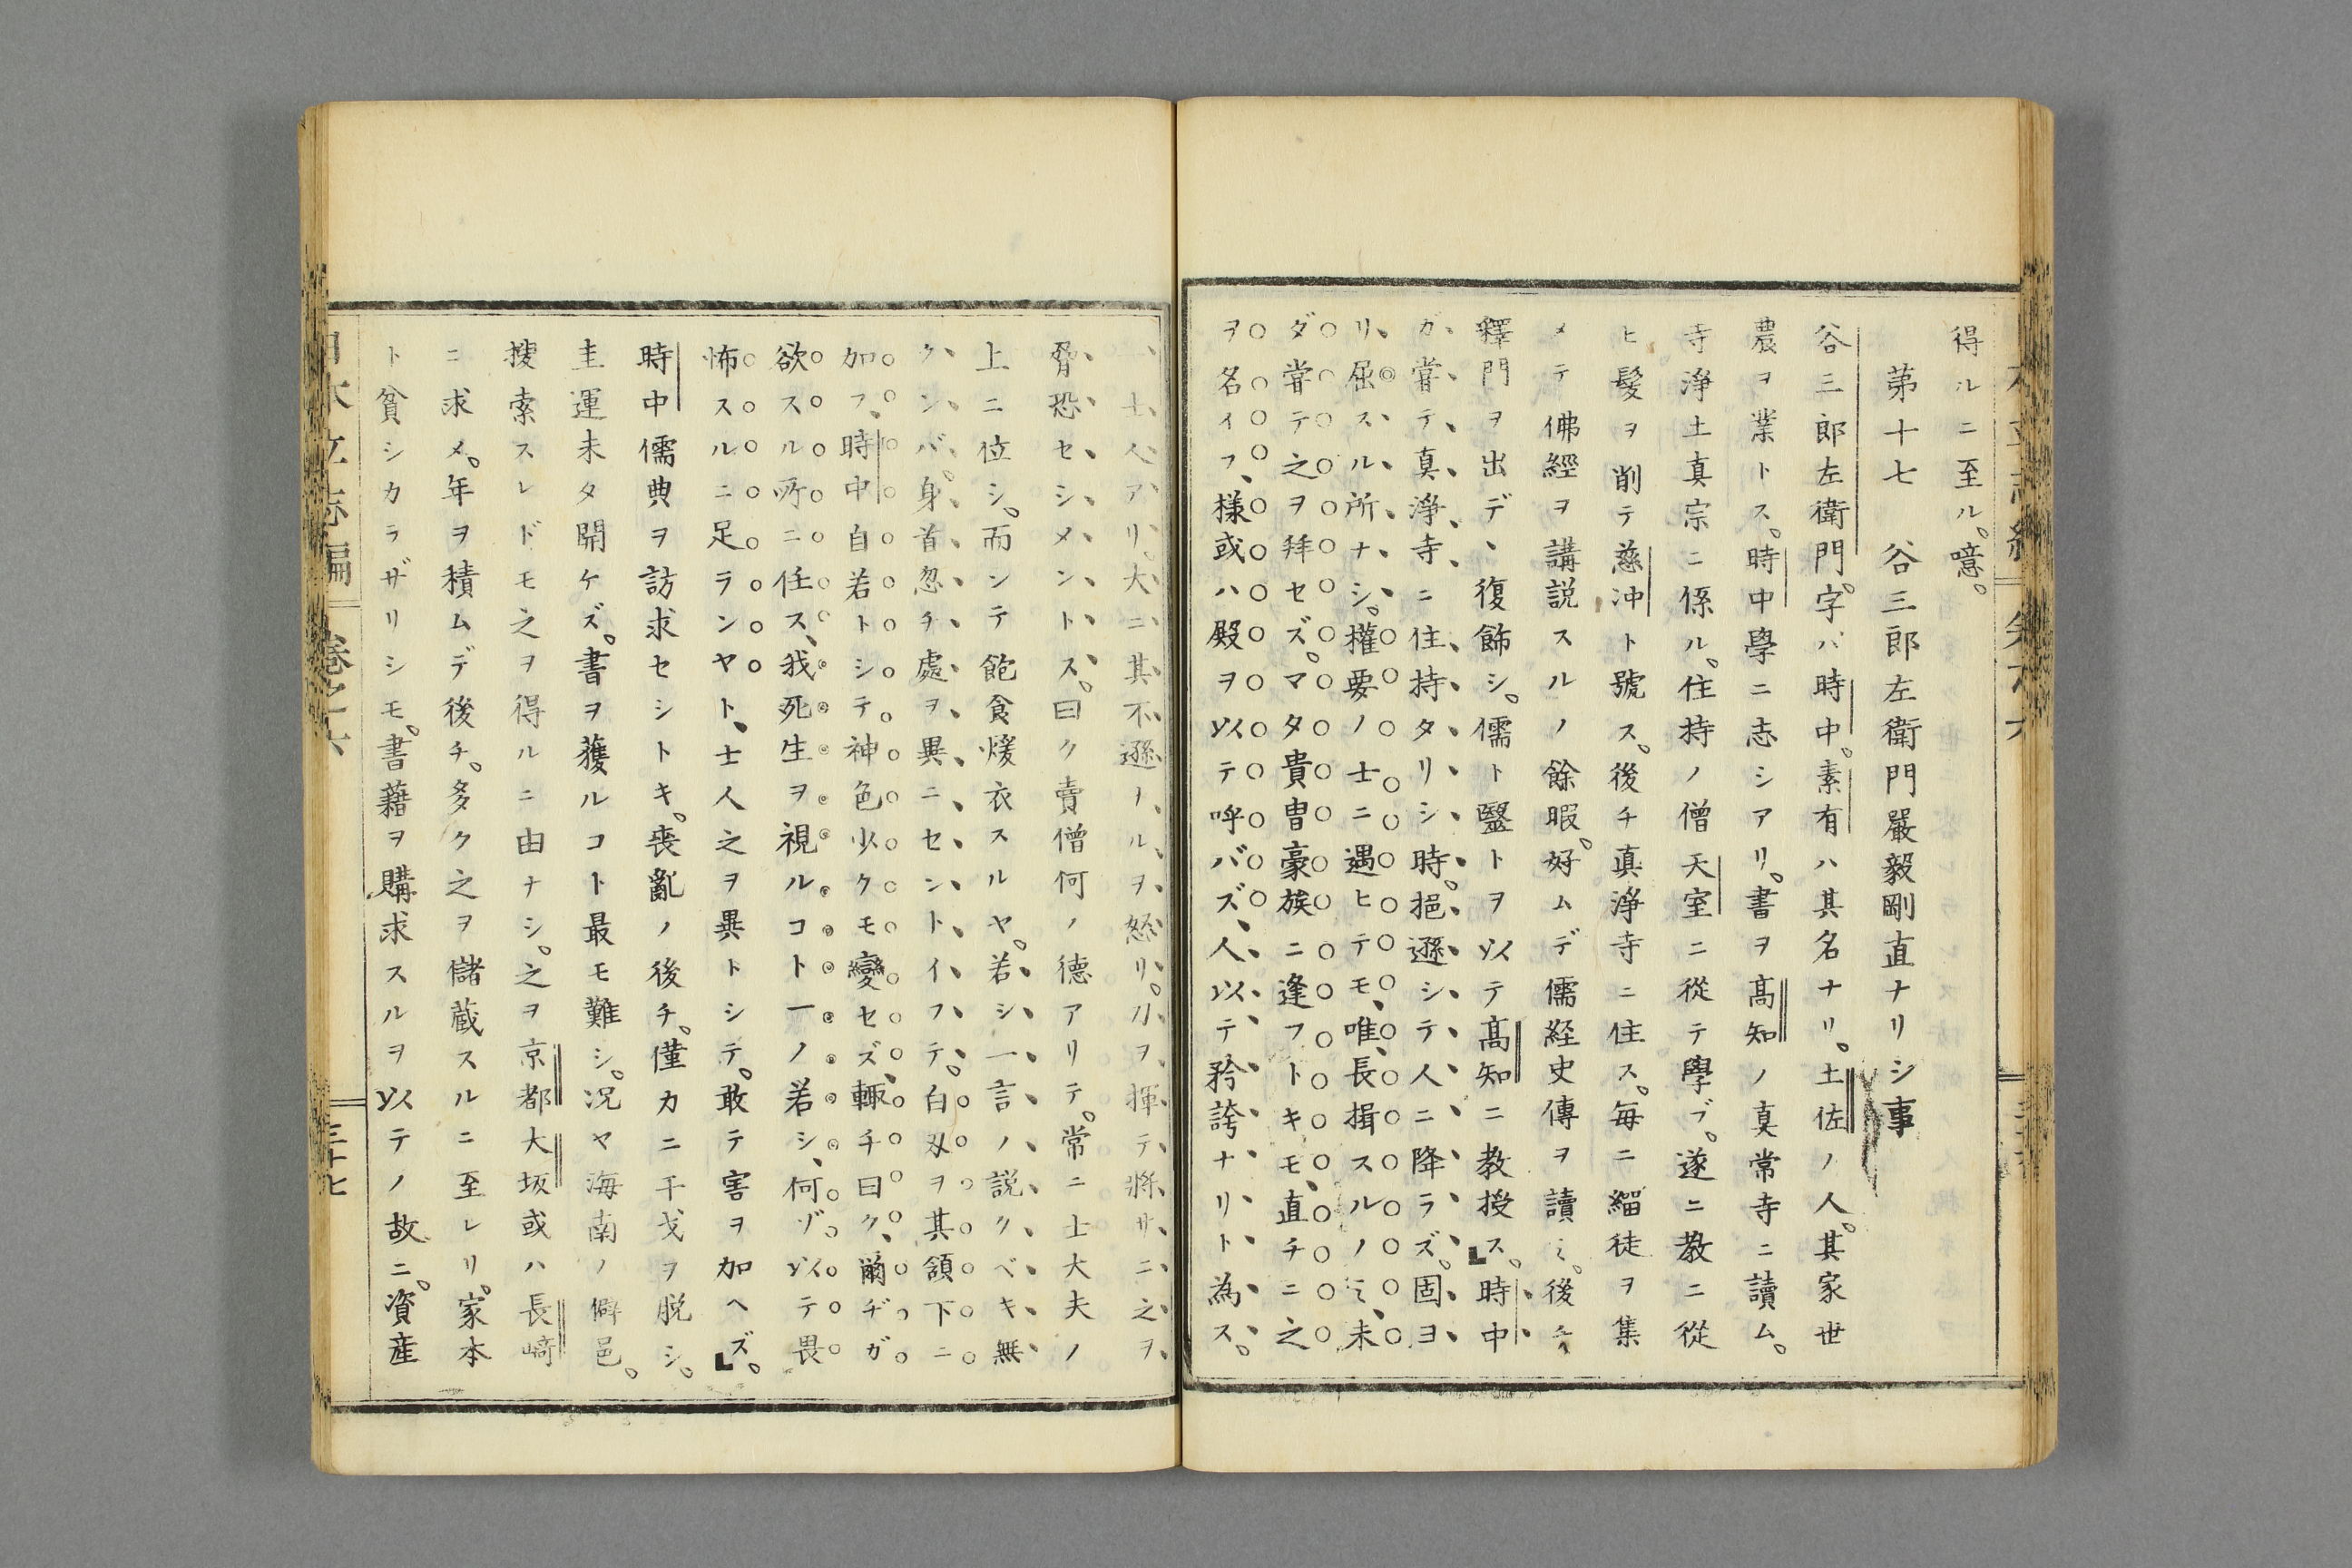 得ルニ至ル。噫。
第十七　谷三郎左衛門嚴毅剛直ナリシ事
谷三郎左衛門。字ハ時中。素有ハ其名ナリ。土佐ノ人。其家世
農ヲ業トス。時中學ニ志シアリ。書ヲ髙知ノ真常寺ニ讀ム。
寺浄土真宗ニ係ル。住持ノ僧天室ニ從テ學ブ。遂ニ教ニ從
ヒ髮ヲ削テ慈沖ト號ス。後チ真浄寺ニ住ス。毎ニ緇徒ヲ集
メテ佛經ヲ講説スルノ餘暇。好ムデ儒経史傳ヲ讀ミ。後チ
釋門ヲ出デ、復飾シ。儒ト毉トヲ以テ髙知ニ教授ス。」時中
ガ甞テ真浄寺ニ住持タリシ時。挹遜シテ人ニ降ラズ。固ヨ
リ屈スル所ナシ。權要ノ士ニ遇ヒテモ、唯長揖スルノミ、未
ダ甞テ之ヲ拜セズ。マタ貴冑豪族ニ逢フトキモ、直チニ之
ヲ名イフ、様或ハ殿ヲ以テ呼バズ、人以テ矜誇ナリト為ス。
一士人アリ。大ニ其不遜ナルヲ怒リ。刀ヲ揮テ將サニ之ヲ
脅恐セシメントス。曰ク賣僧何ノ德アリテ。常ニ士大夫ノ
上ニ位シ。而シテ飽食煖衣スルヤ。若シ一言ノ説クベキ無
クンバ。身首忽チ處ヲ異ニセントイフテ。白刄ヲ其頷下ニ
加フ、時中自若トシテ神色少クモ變セズ、輙チ曰ク、爾ヂガ
欲スル所ニ任ス、我死生ヲ視ルコト一ノ若シ、何ゾ以テ畏
怖スルニ足ランヤト、士人之ヲ異トシテ。敢テ害ヲ加ヘズ。」
時中儒典ヲ訪求セシトキ。喪亂ノ後チ。僅カニ干戈ヲ脱シ。
圭運未タ開ケズ。書ヲ獲ルコト最モ難シ。况ヤ海南ノ僻邑。
搜索スレドモ之ヲ得ルニ由ナシ。之ヲ京都大坂或ハ長﨑
ニ求メ。年ヲ積ムデ後チ。多ク之ヲ儲蔵スルニ至レリ。家本
ト貧シカラザリシモ。書藉ヲ購求スルヲ以テノ故ニ。資産
日本立志編　巻之六　三十七